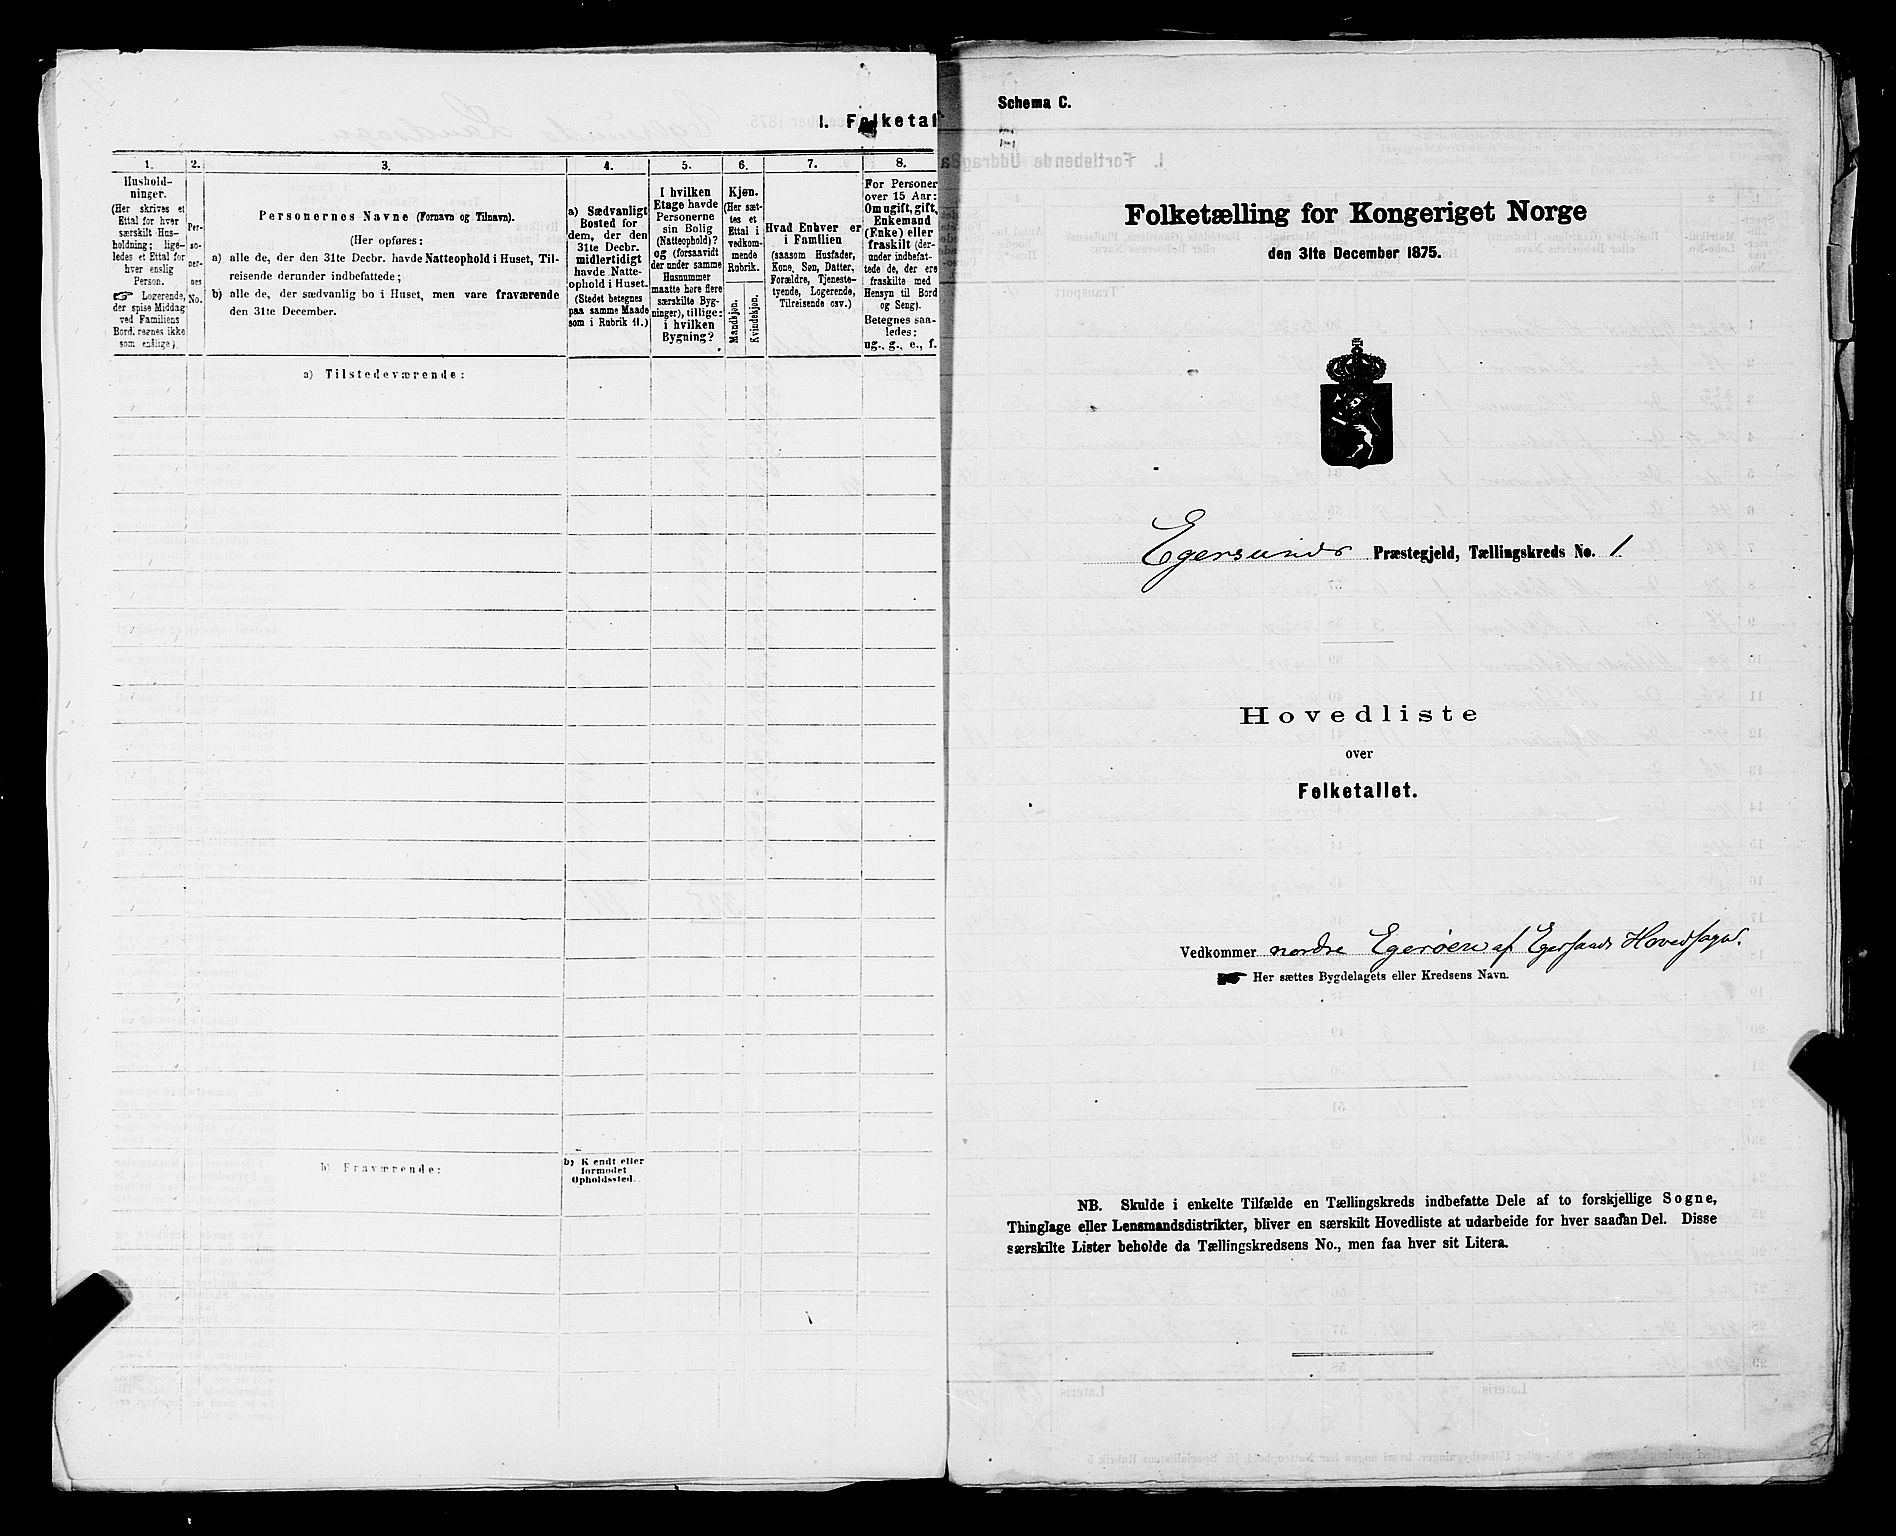 I. Folketal
1.
2.
3.
4.
5.
6.
7.
8.
Hushold-
ninger.
(Her skrives et
Ettal for hver
særskilt Hus-
holdning; lige-
ledes et Ettal for
hver enslig
Person.
☞ Logerende,
der spise Middag
ved Familiens
Bord, regnes ikke
som enslige).
Per-
so-
ner-
nes
No.
Personernes Navne (Fornavn og Tilnavn).
(Her opføres:
a) alle de, der den 31te Decbr. havde Natteophold i Huset, Til-
reisende derunder indbefattede;
b) alle de, der sædvanlig bo i Huset, men vare fraværende
den 31te December.
a) Sædvanligt
Bosted for
dem, der den
31te Decbr.
midlertidigt
havde Natte-
ophold i Huset.
(Stedet betegnes
paa samme Maade
som i Rubrik 11.)
I hvilken
Etage havde
Personerne
sin Bolig
(Natteophold)?
og (forsaavidt
der under samme
Husnummer
maatte høre flere
særskilte Byg-
ninger), tillige:
i hvilken
Bygning?
Kjøn.
(Her sæt-
tes et
Ettal i
vedkom-
mende
Rubrik.
Mandkjøn.
Kvindekjøn.
Hvad Enhver er
i Familien
(saasom Husfader,
Kone, Søn, Datter,
Forældre, Tjeneste-
tyende, Logerende,
Tilreisende osv.)
For Personer
over 15 Aar:
Om ugift, gift,
Enkemand
(Enke) eller
fraskilt (der-
under indbefat-
tede de, der ere
fraskilte med
Hensyn til Bord
og Seng).
Betegnes saa-
ledes:
ug., g., e., f.
a) Tilstedeværende:
b) Fraværende:
b) Kjendt eller
formodet
Opholdssted.
Schema C.
Folketælling for Kongeriget Norge
den 31te December 1875.
Egersunds Præstegjeld, Tællingskreds No. 1
Hovedliste
over
Folketallet.
Vedkommer nordre Egerøen af Egersunds Hovedsogn.
☞ Her sættes Bygdelagets eller Kredsens Navn.
NB. Skulde i enkelte Tilfælde en Tællingskreds indbefatte Dele af to forskjellige Sogne,
Thinglage eller Lensmandsdistrikter, bliver en særskilt Hovedliste at udarbeide for hver saadan Del. Disse
særskilte Lister beholde da Tællingskredsens No., men faa hver sit Litera.